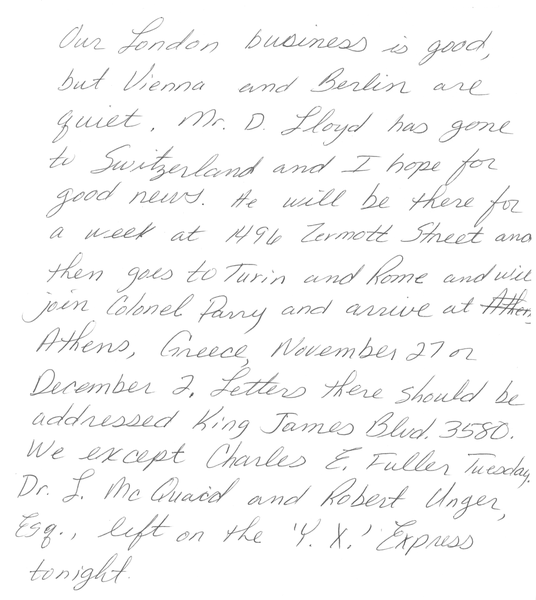 Our London business is good,
but Vienna and Berlin are
quiet. Mr. D. Lloyd has gone
to Switzerland and I hope for
good news. He will be there for
a week at 1496 Zermott Street and
then goes to Turin and Rome and will
join Colonel Parry and arrive at Athen
Athens, Greece, November 27 or
December 2. Letters there should be
addressed King James Blvd. 3580.
We except Charles E. Fuller Tuesday.
Dr. L. McQuaid and Robert Unger,
Esq., left on the 'Y. X.' Express
tonight.